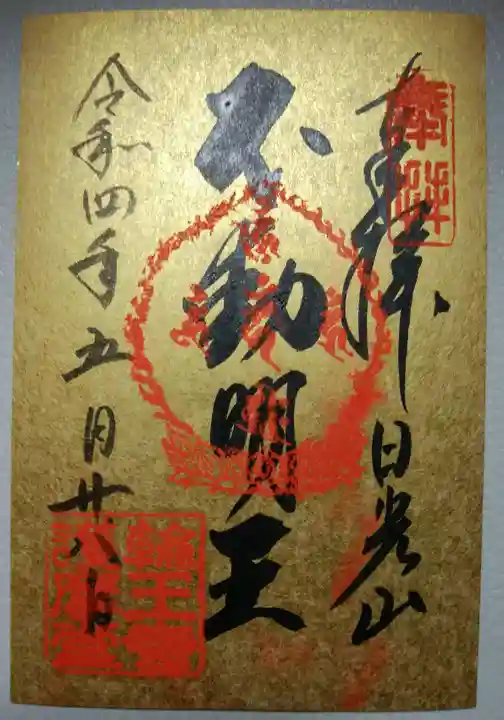 奉拝 日光山
不動明王
令和四年五月廿八日
奉拝